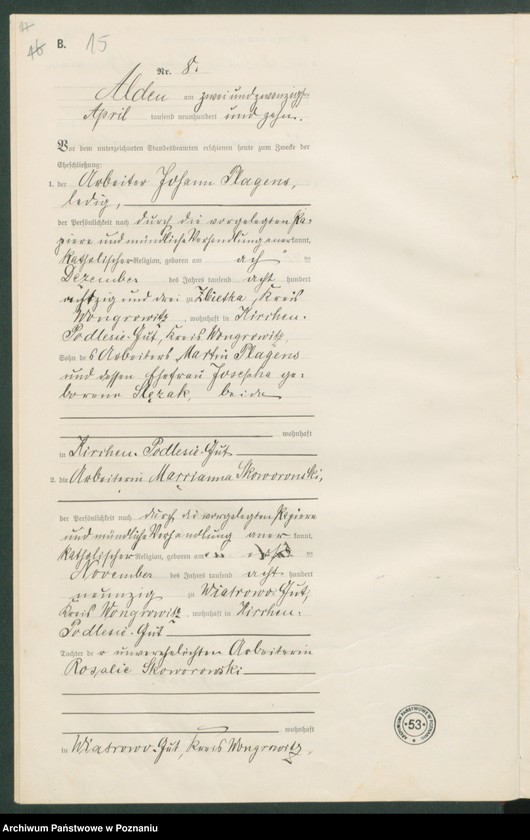 B. 15
Nr. 8.
Alden am zwei und zwanzigsten
April tausend neunhundert und zehn.
Vor dem unterzeichneten Standesbeamten erschienen heute zum Zwecke der
Eheschließung:
1. der Arbeiter Johann Plagens,
ledig,
der Persönlichkeit nach durch die vorgelegten Pa-
piere und mündliche Verhandlung anerkannt,
katholischer Religion, geboren am ten
Dezember des Jahres tausend acht hundert
achtzig und drei zu Zbietka, Kreis
Wongrowitz, wohnhaft in Kirchen-
Podlesie-Gut, Kreis Wongrowitz,
Sohn des Arbeiters Martin Plagens
und dessen Ehefrau Josepha ge-
borene Slęzak, beide
wohnhaft
in Kirchen-Podlesie-Gut
2. die Arbeiterin Marrianna Skoworonski,
der Persönlichkeit nach durch die vorgelegten Papiere
und mündliche Verhandlung anerkannt,
katholischer Religion, geboren am ten
November des Jahres tausend acht hundert
neunzig zu Wiatrowo-Gut,
Kreis Wongrowitz, wohnhaft in Kirchen-
Podlesie-Gut
Tochter der unverehelichten Arbeiterin
Rosalie Skoworowski
wohnhaft
in Wiatrowo-Gut, Kreis Wongrowitz.
ARCHIWUM PAŃSTWOWE W POZNANIU
53
Archiwum Państwowe w Poznaniu